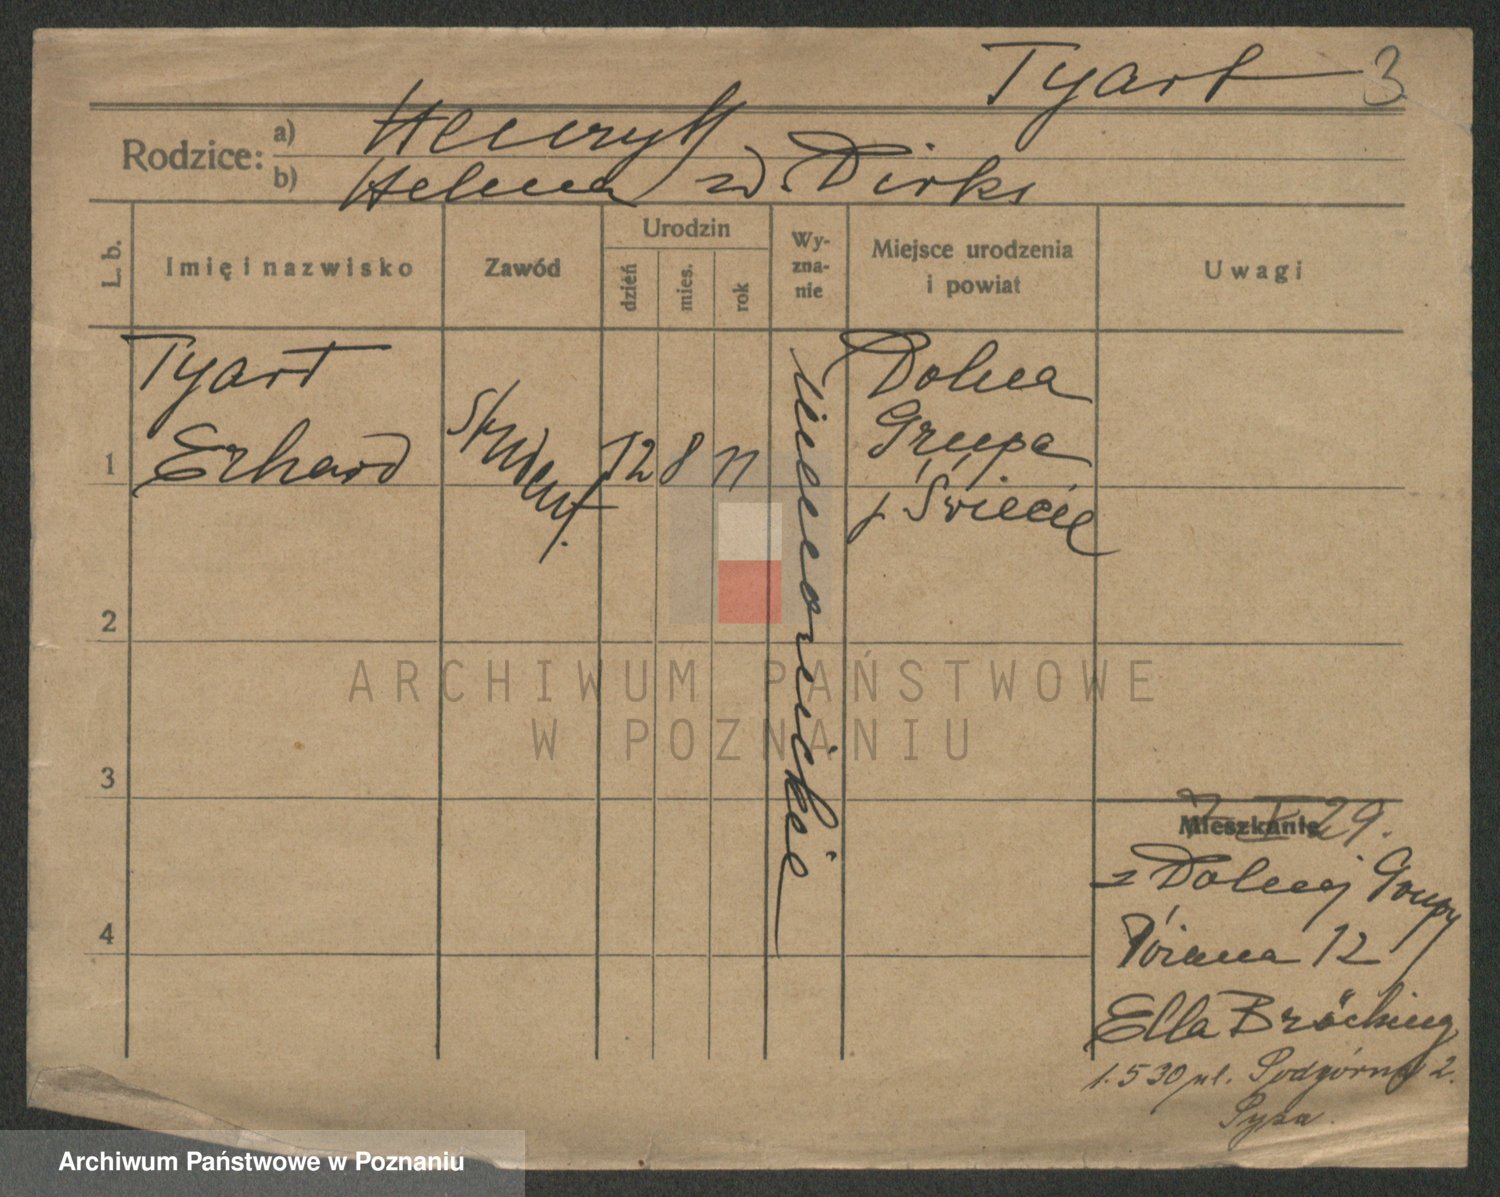 Tyart 3
Rodzice: a) Henryk
b) Helena zd. Dirks
L. b.
Imię i nazwisko
Zawód
Urodzin
dzień
mies.
rok
Wy-
zna-
nie
Miejsce urodzenia
i powiat
Uwagi
Tyart
Erhard
1
Student.
12 8 11
mennonickie
Dolna
Grupa
p. Świecie
2
3
4
ARCHIWUM PAŃSTWOWE
W POZNANIU
Mieszkanie
29.
z Dolnej Grupy
Różana 12
Ella Bröcking
1.5 30 pl. Podgórna 2.
Archiwum Państwowe w Poznaniu